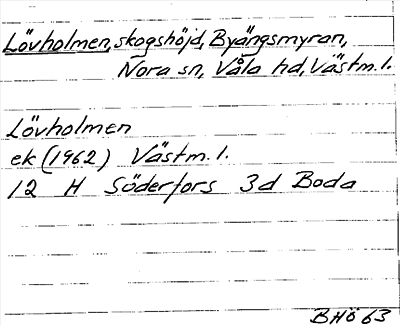 Lövholmen, skogshöjd, Byängsmyran,
Nora sn, Våla hd, Västm. l.
Lövholmen
ek (1962) Västm. l.
12 H Söderfors 3d Boda
BHö 63